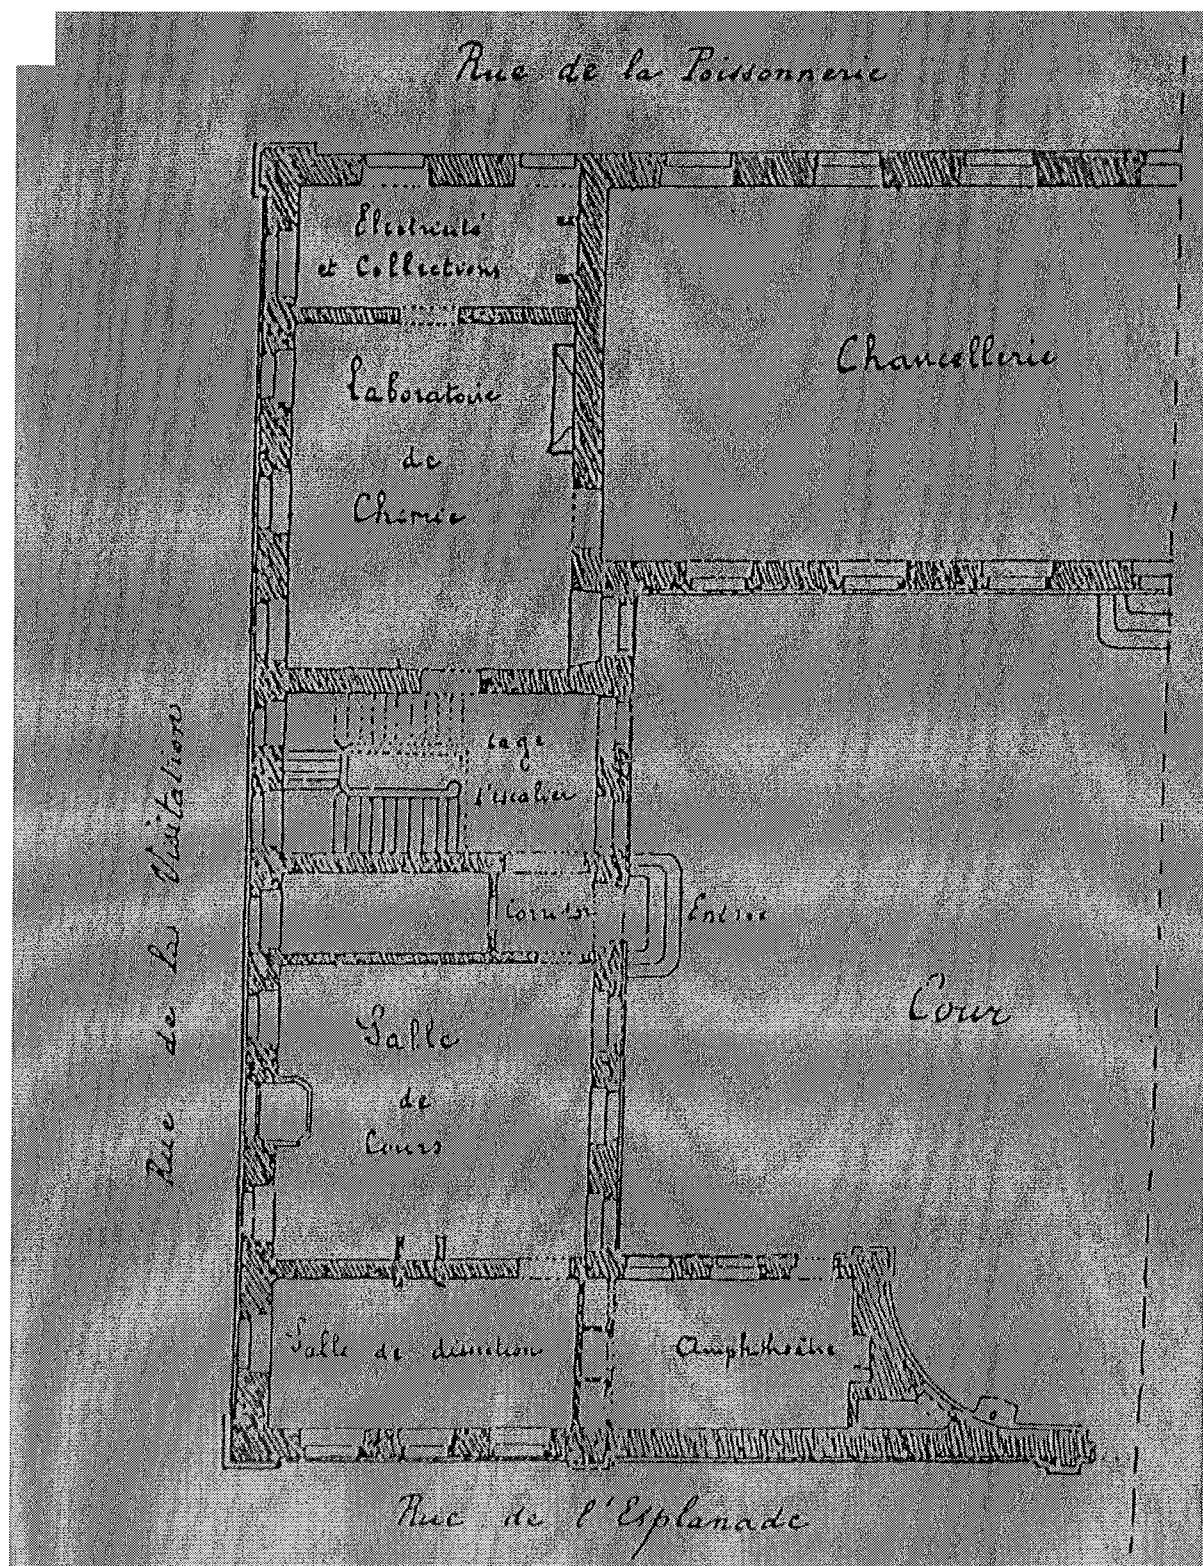 Rue de la Poissonnerie
Electricité
et Collections
Chancellerie
Laboratoire
de
Chimie
Cage
d'escalier
Rue de la Visitation
Corridor
Entrée
Cour
Salle
de
Cours
Salle de dissection
Amphithéâtre
Rue de l'Esplanade